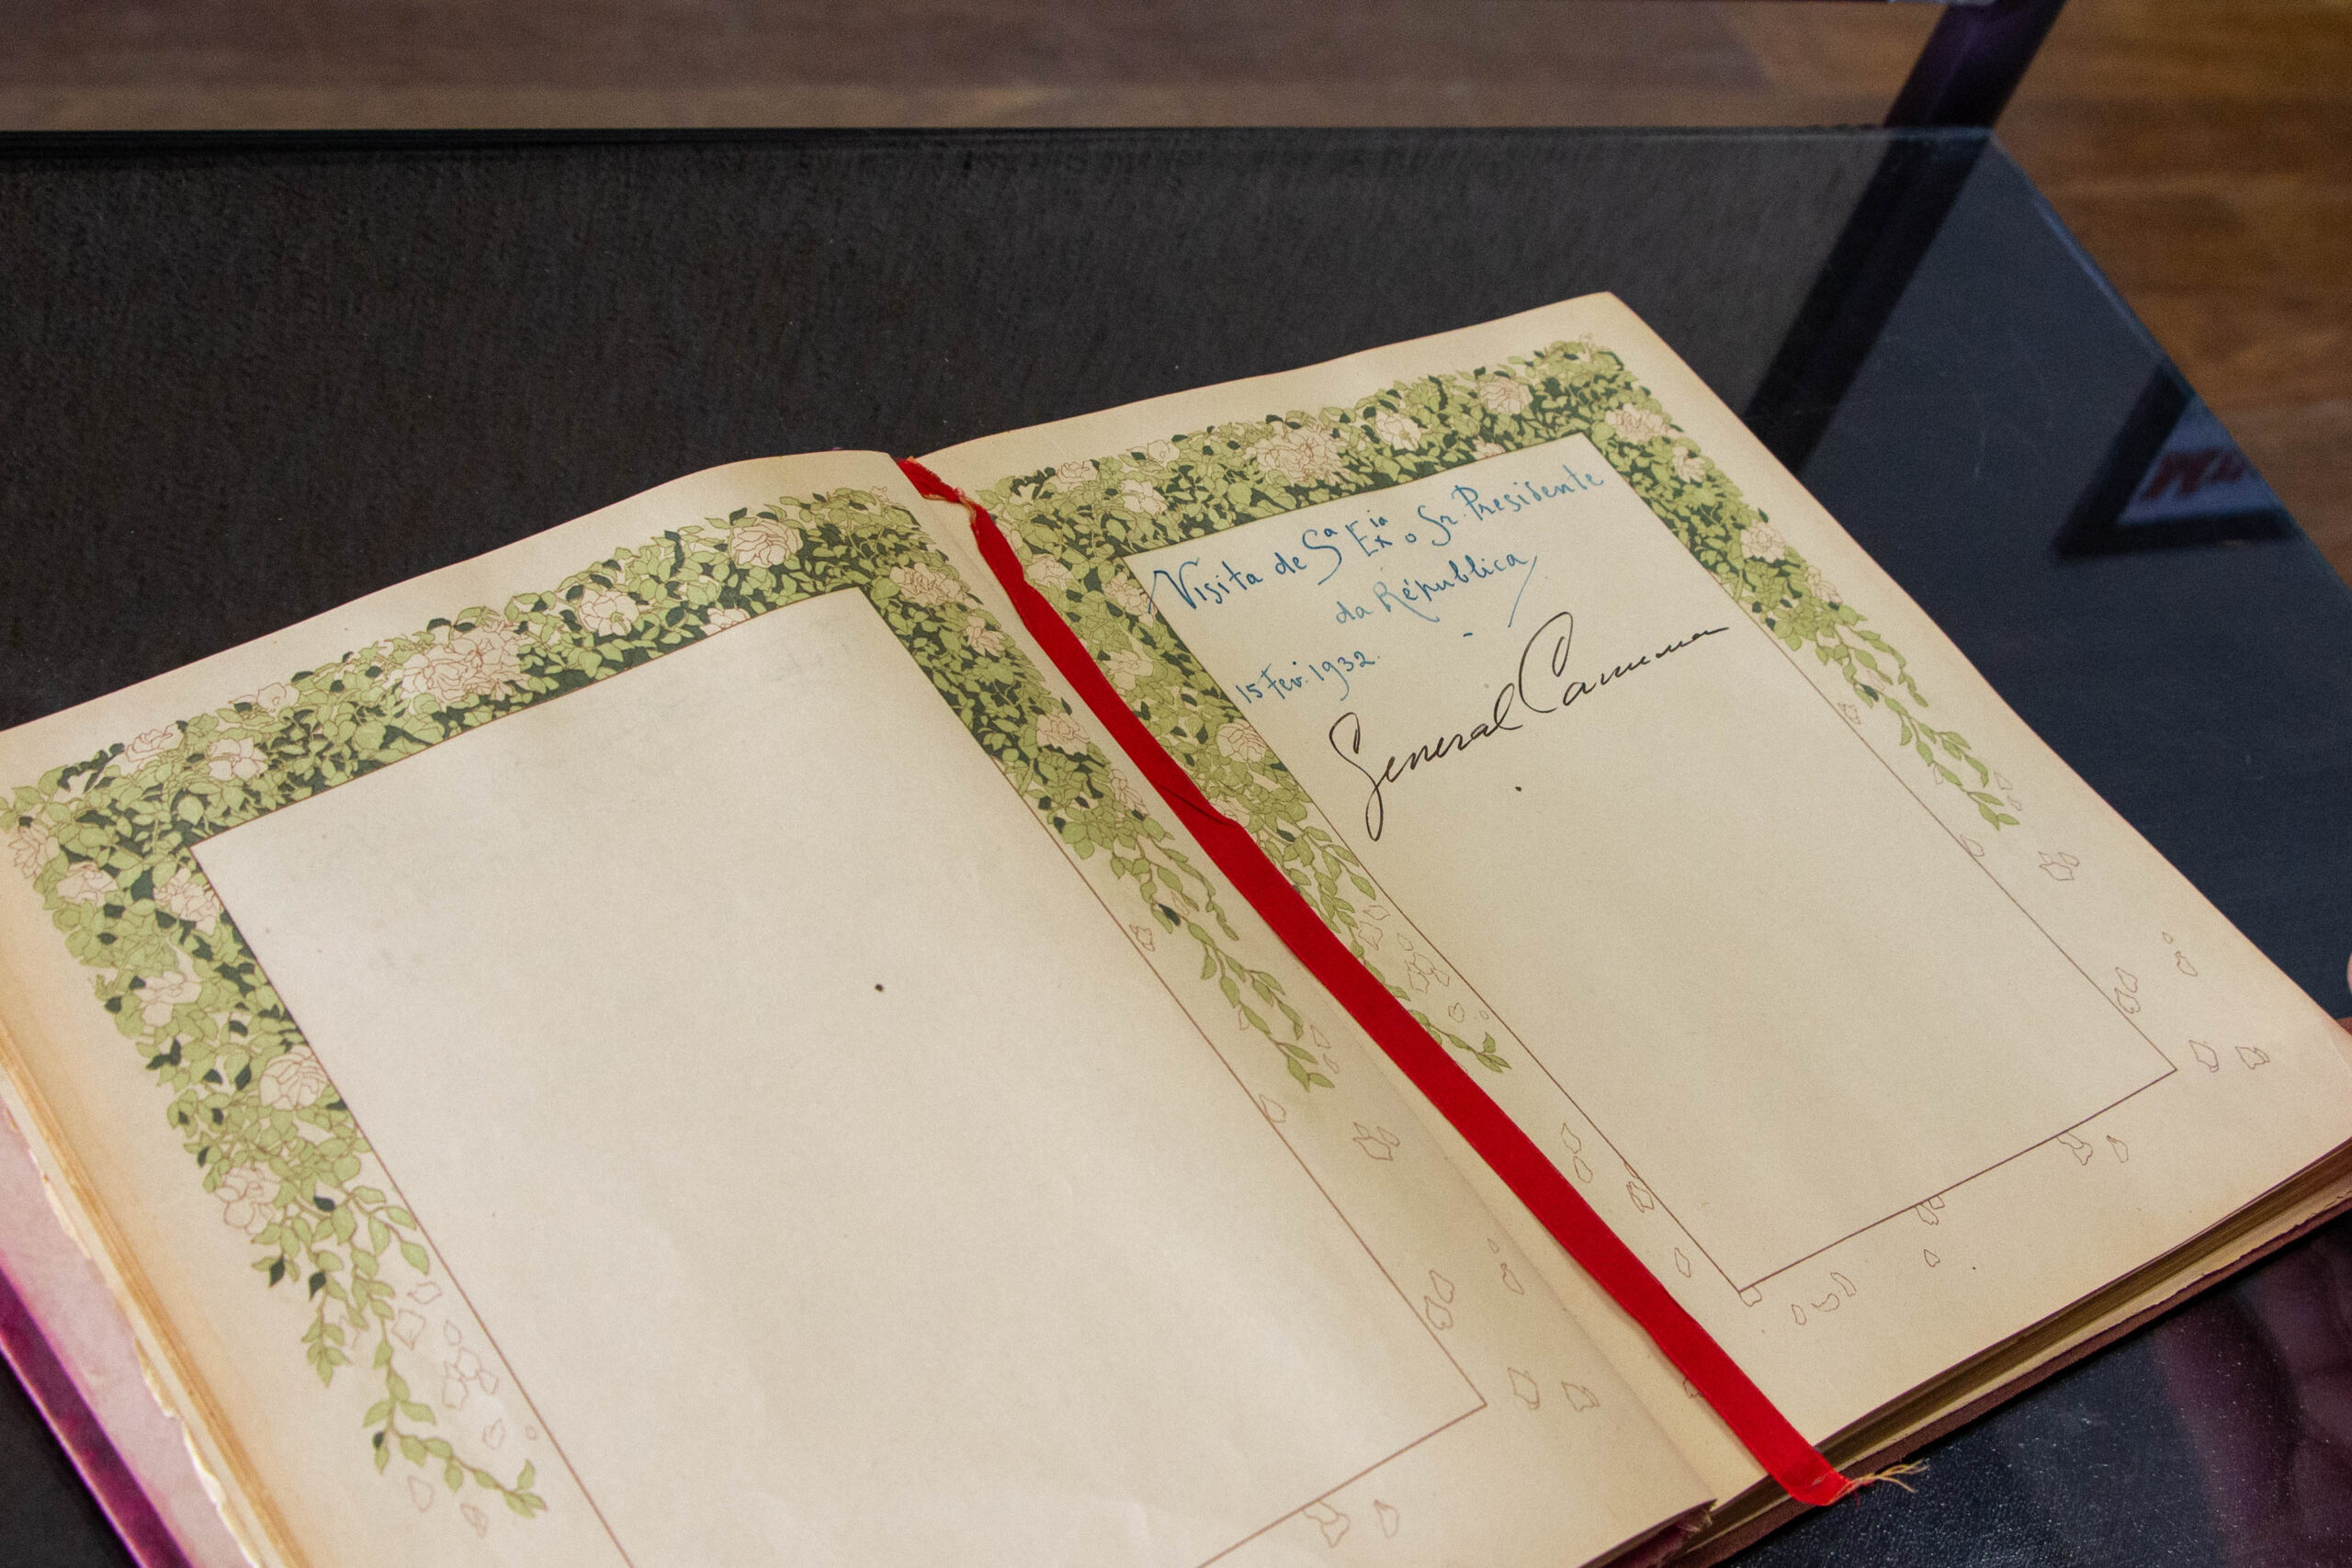 Visita de Sª Exia o Sr. Presidente
da Républica
15 Fev. 1932.
General Carmona